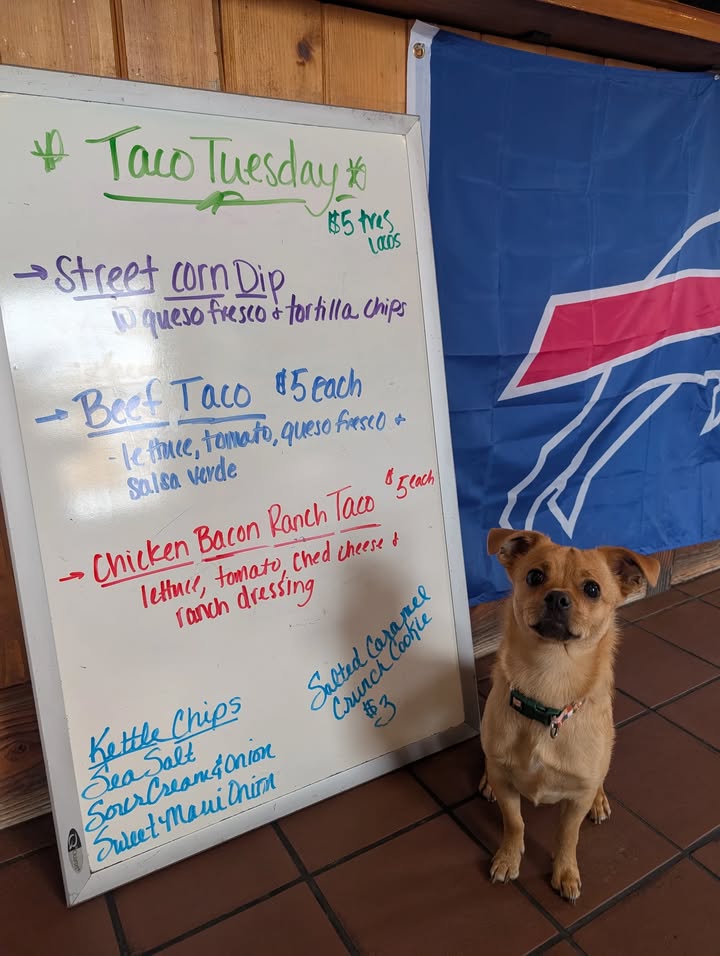 Taco Tuesday
$5 tres
Locos
→ Street corn Dip
w queso fresco + tortilla chips
→ Beef Taco $5 each
- lettuce, tomato, queso fresco +
salsa verde
→ Chicken Bacon Ranch Taco $5 each
lettuce, tomato, ched cheese +
ranch dressing
Salted Caramel
Crunch Cookie
$3
Kettle Chips
Sea Salt
Sour Cream & Onion
Sweet Maui Onion